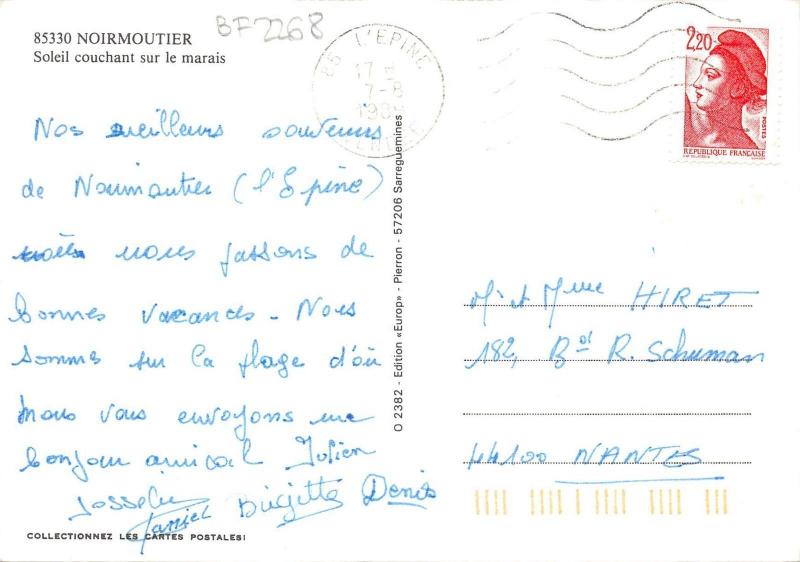 85330 NOIRMOUTIER
Soleil couchant sur le marais
BF2268
85 L'EPINE
17 H
7-8
198
VENDEE
2,20
POSTES
REPUBLIQUE FRANÇAISE
Nos meilleurs souvenirs
de Noirmoutier (l'Epine)
nous passons de
bonnes vacances - Nous
sommes sur la plage d'où
nous vous envoyons un
bonjour amical Julien
Josselin Daniel Brigitte Denis
COLLECTIONNEZ LES CARTES POSTALES!
O 2382 - Edition «Europ» - Pierron - 57206 Sarreguemines
Mr et Mme HIRET
182, Bd R. Schuman
44100 NANTES